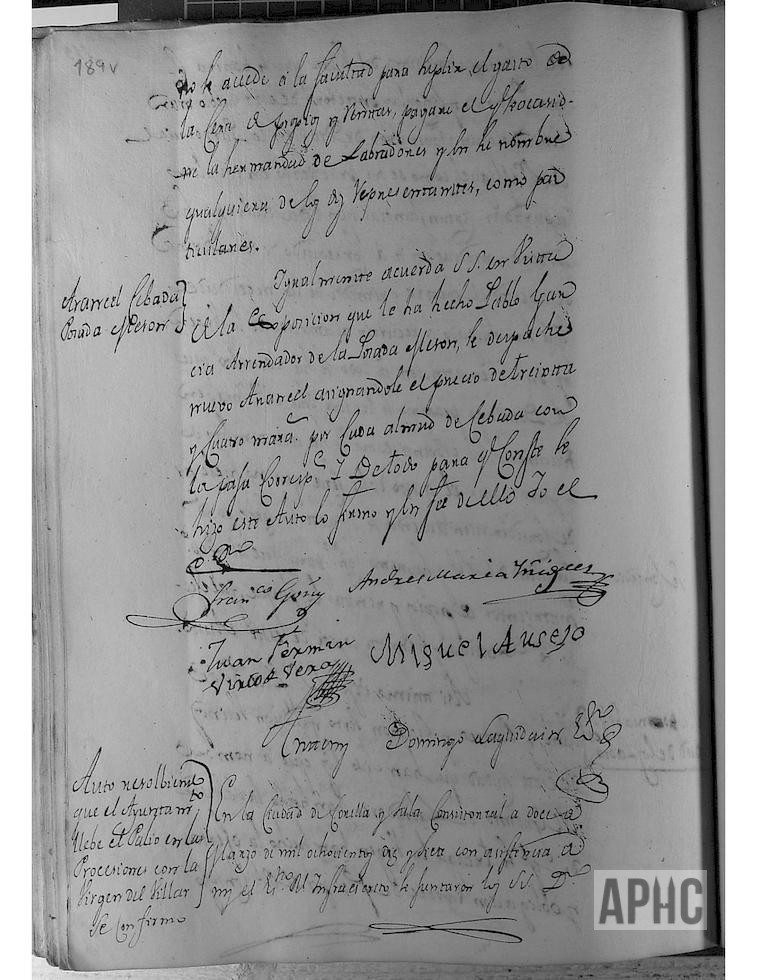 189v
no se accede a la facultad para suplir el gasto de
la Cera de propios y Rentas, pagare el q.e ocasio-
ne la hermandad de Labradores y en su nombre
qualquiera de los dos Representantes, como par
ticulares.
Arancel Cebada
Posada Meson
Igualmente acuerda S.S. en Vista
de la Exposicion que le ha hecho Pablo Gar
cia Arrendador de la Posada Meson, se despache
nuevo Arancel asignandole el precio de treinta
y Cuatro mara.s por Cada almud de Cebada con
la paja Corresp.te Y De todo para q.e Conste se
hizo este Auto lo firmo y en fee de ello Yo el
es.no
Fran.co Goñy Andres Maria Yñiguez
Juan Fermin
Virto de Vera
Miguel Ausejo
Antemy Domingo Laquidain Es.no
Auto resolbiend
que el Ayuntam.to
llebe el Palio en las
Procesiones con la
Virgen del Villar
Se Confirmo
En la Ciudad de Corella y Sala Consistorial a doce de
Marzo de mil ochocientos diez y siete con asistencia de
my el Es.no R.l Infraescrito se juntaron los S.S. D.n
APHC